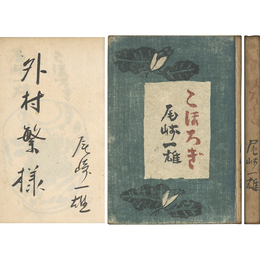 外村繁様
尾崎一雄
こほろぎ
尾崎一雄
こほろぎ
尾崎一雄